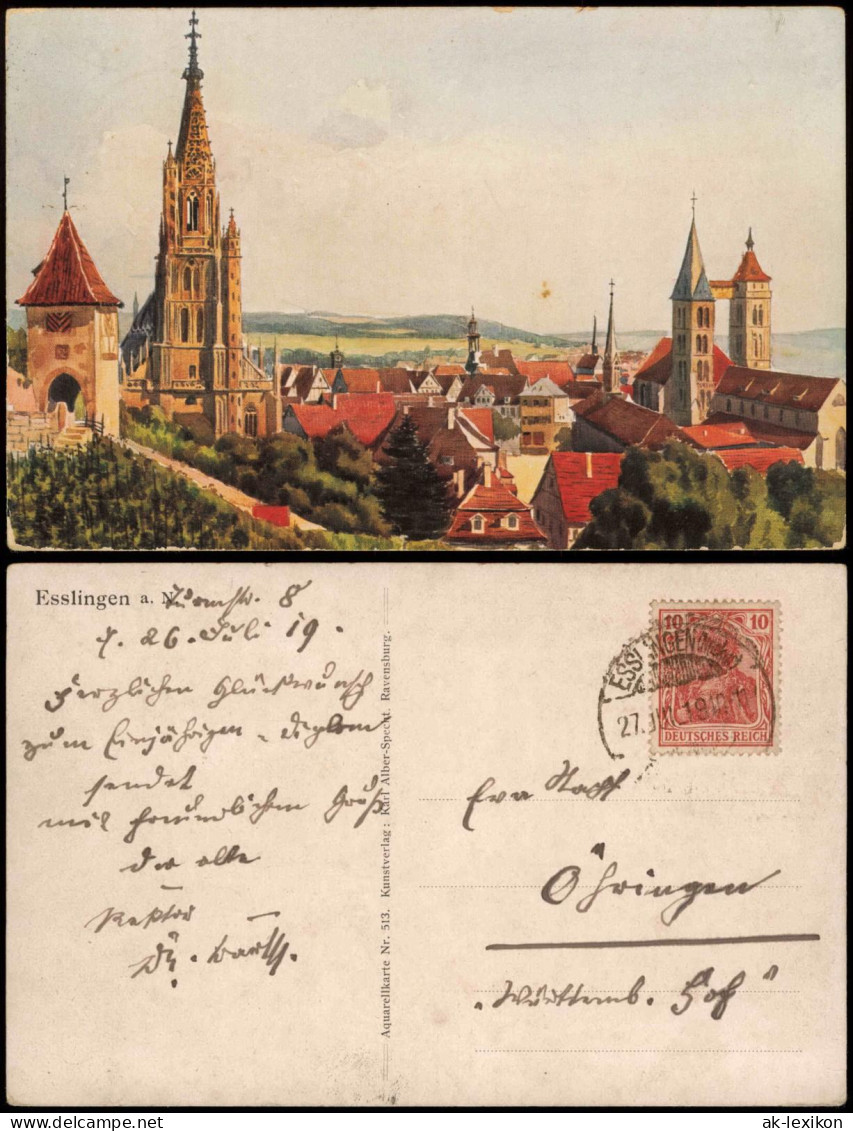 Esslingen a. N.
Turmstr. 8
d. 26. Juli 19.
Herzlichen Glückwunsch
zum Einjährigen-Diplom
sendet
mit freundlichem Gruß
der alte
Rektor
Dr. Barth.
Aquarellkarte Nr. 513. Kunstverlag: Karl Alber-Specht. Ravensburg.
ESSLINGEN
27. JUL 19 12-1
10 10
DEUTSCHES REICH
Eva
Öhringen
„Württemb. Hof“
ak-lexikon